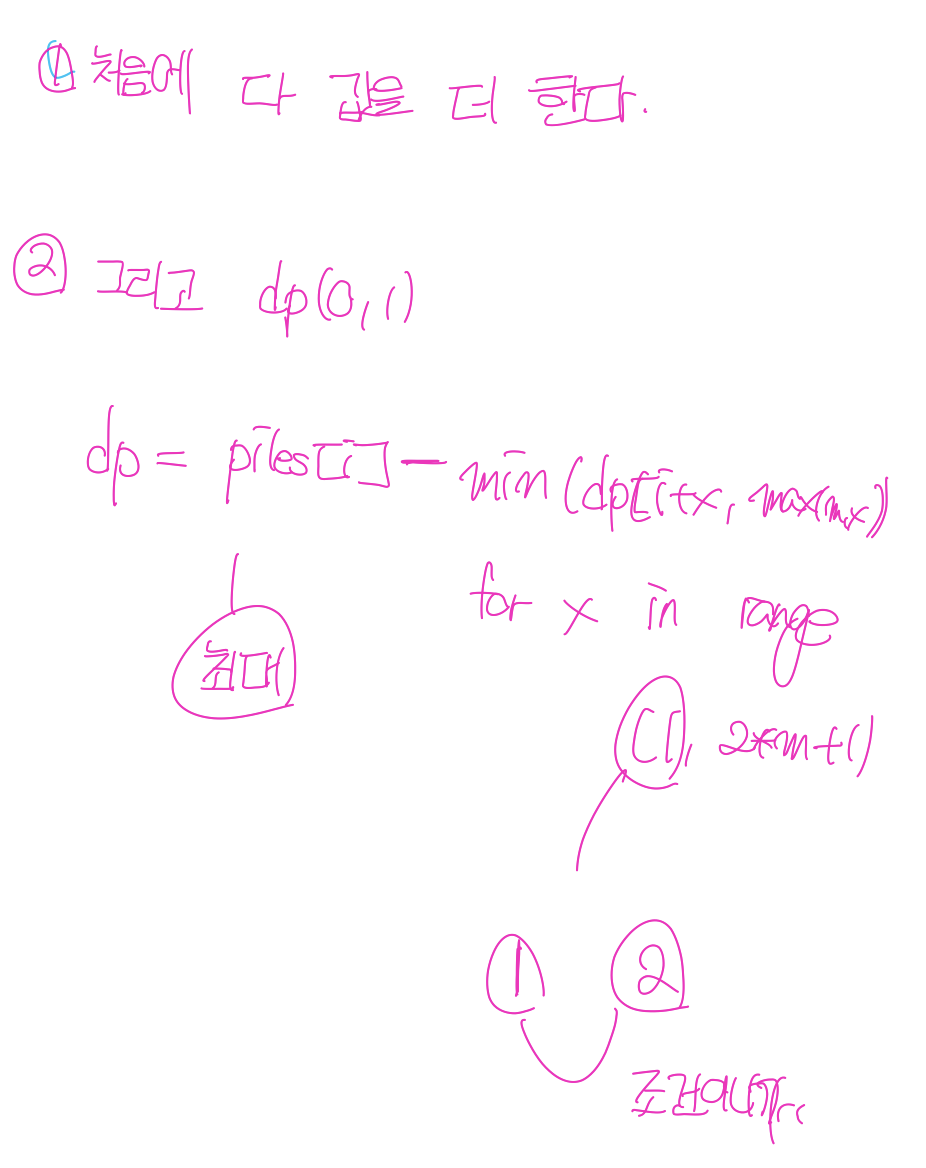 ① 처음에 다 값을 더 한다.
② 그리고 dp(0,1)
dp = piles[i] - min(dp[i+x, max(m,x))
for x in range
최대
(1, 2*m+1)
① ②